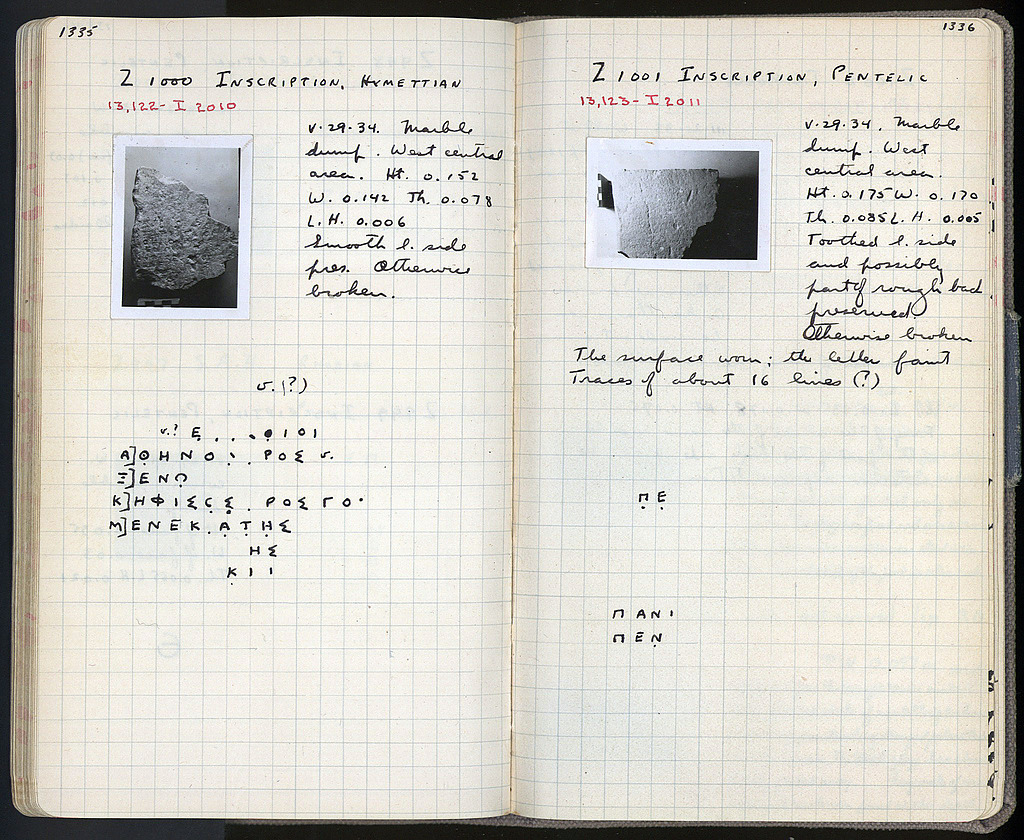 1335
Z 1000 INSCRIPTION, HYMETTIAN
13,122- I 2010
v.29.34. Marble
dump. West central
area. Ht. 0.152
W. 0.142 Th. 0.078
L.H. 0.006
Smooth l. side
pres. Otherwise
broken.
v.(?)
v.? Ẹ . . . Ο Ι Ο Ι
Α]Θ Η Ν Ο Ι . Ρ Ο Σ v.
Ξ]Ε Ν Ο
Κ]Η Φ Ι Σ Ο Σ . Ρ Ο Σ Γ Ο
Μ]Ε Ν Ε Κ . Α Τ Η Σ
Η Σ
Κ Ι Ι
1336
Z 1001 INSCRIPTION, PENTELIC
13,123- I 2011
v.29.34. Marble
dump. West
central area.
Ht. 0.175 W. 0.170
Th. 0.085 L.H. 0.005
Toothed l. side
and possibly
part of rough back
preserved.
Otherwise broken
The surface worn; the letter faint
Traces of about 16 lines (?)
Π Ε
Π Α Ν Ι
Π Ε Ν